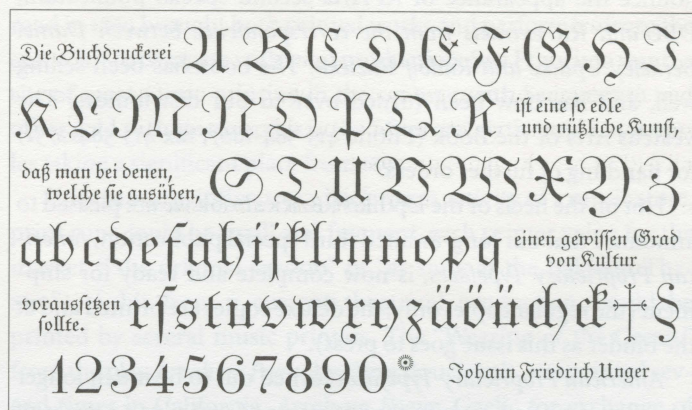 Die Buchdruckerei A B C D E F G H I
K L M N O P Q R ist eine so edle
und nützliche Kunst,
daß man bei denen,
welche sie ausüben, S T U V W X Y Z
a b c d e f g h i j k l m n o p q einen gewissen Grad
von Kultur
voraussetzen r ſ s t u v w x y z ä ö ü ch ck † §
sollte.
1 2 3 4 5 6 7 8 9 0 Johann Friedrich Unger